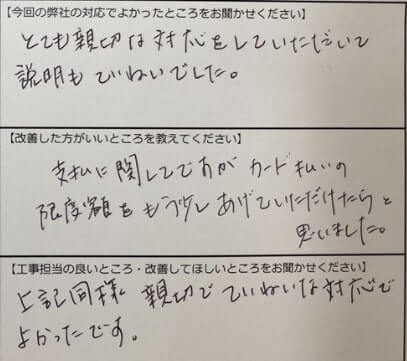 【今回の弊社の対応でよかったところをお聞かせください】
とても親切な対応をしていただいて
説明もていねいでした。
【改善した方がいいところを教えてください】
支払に関してですがカード払いの
限度額をもう少しあげていただけたらと
思いました。
【工事担当の良いところ・改善してほしいところをお聞かせください】
上記同様 親切でていねいな対応で
よかったです。